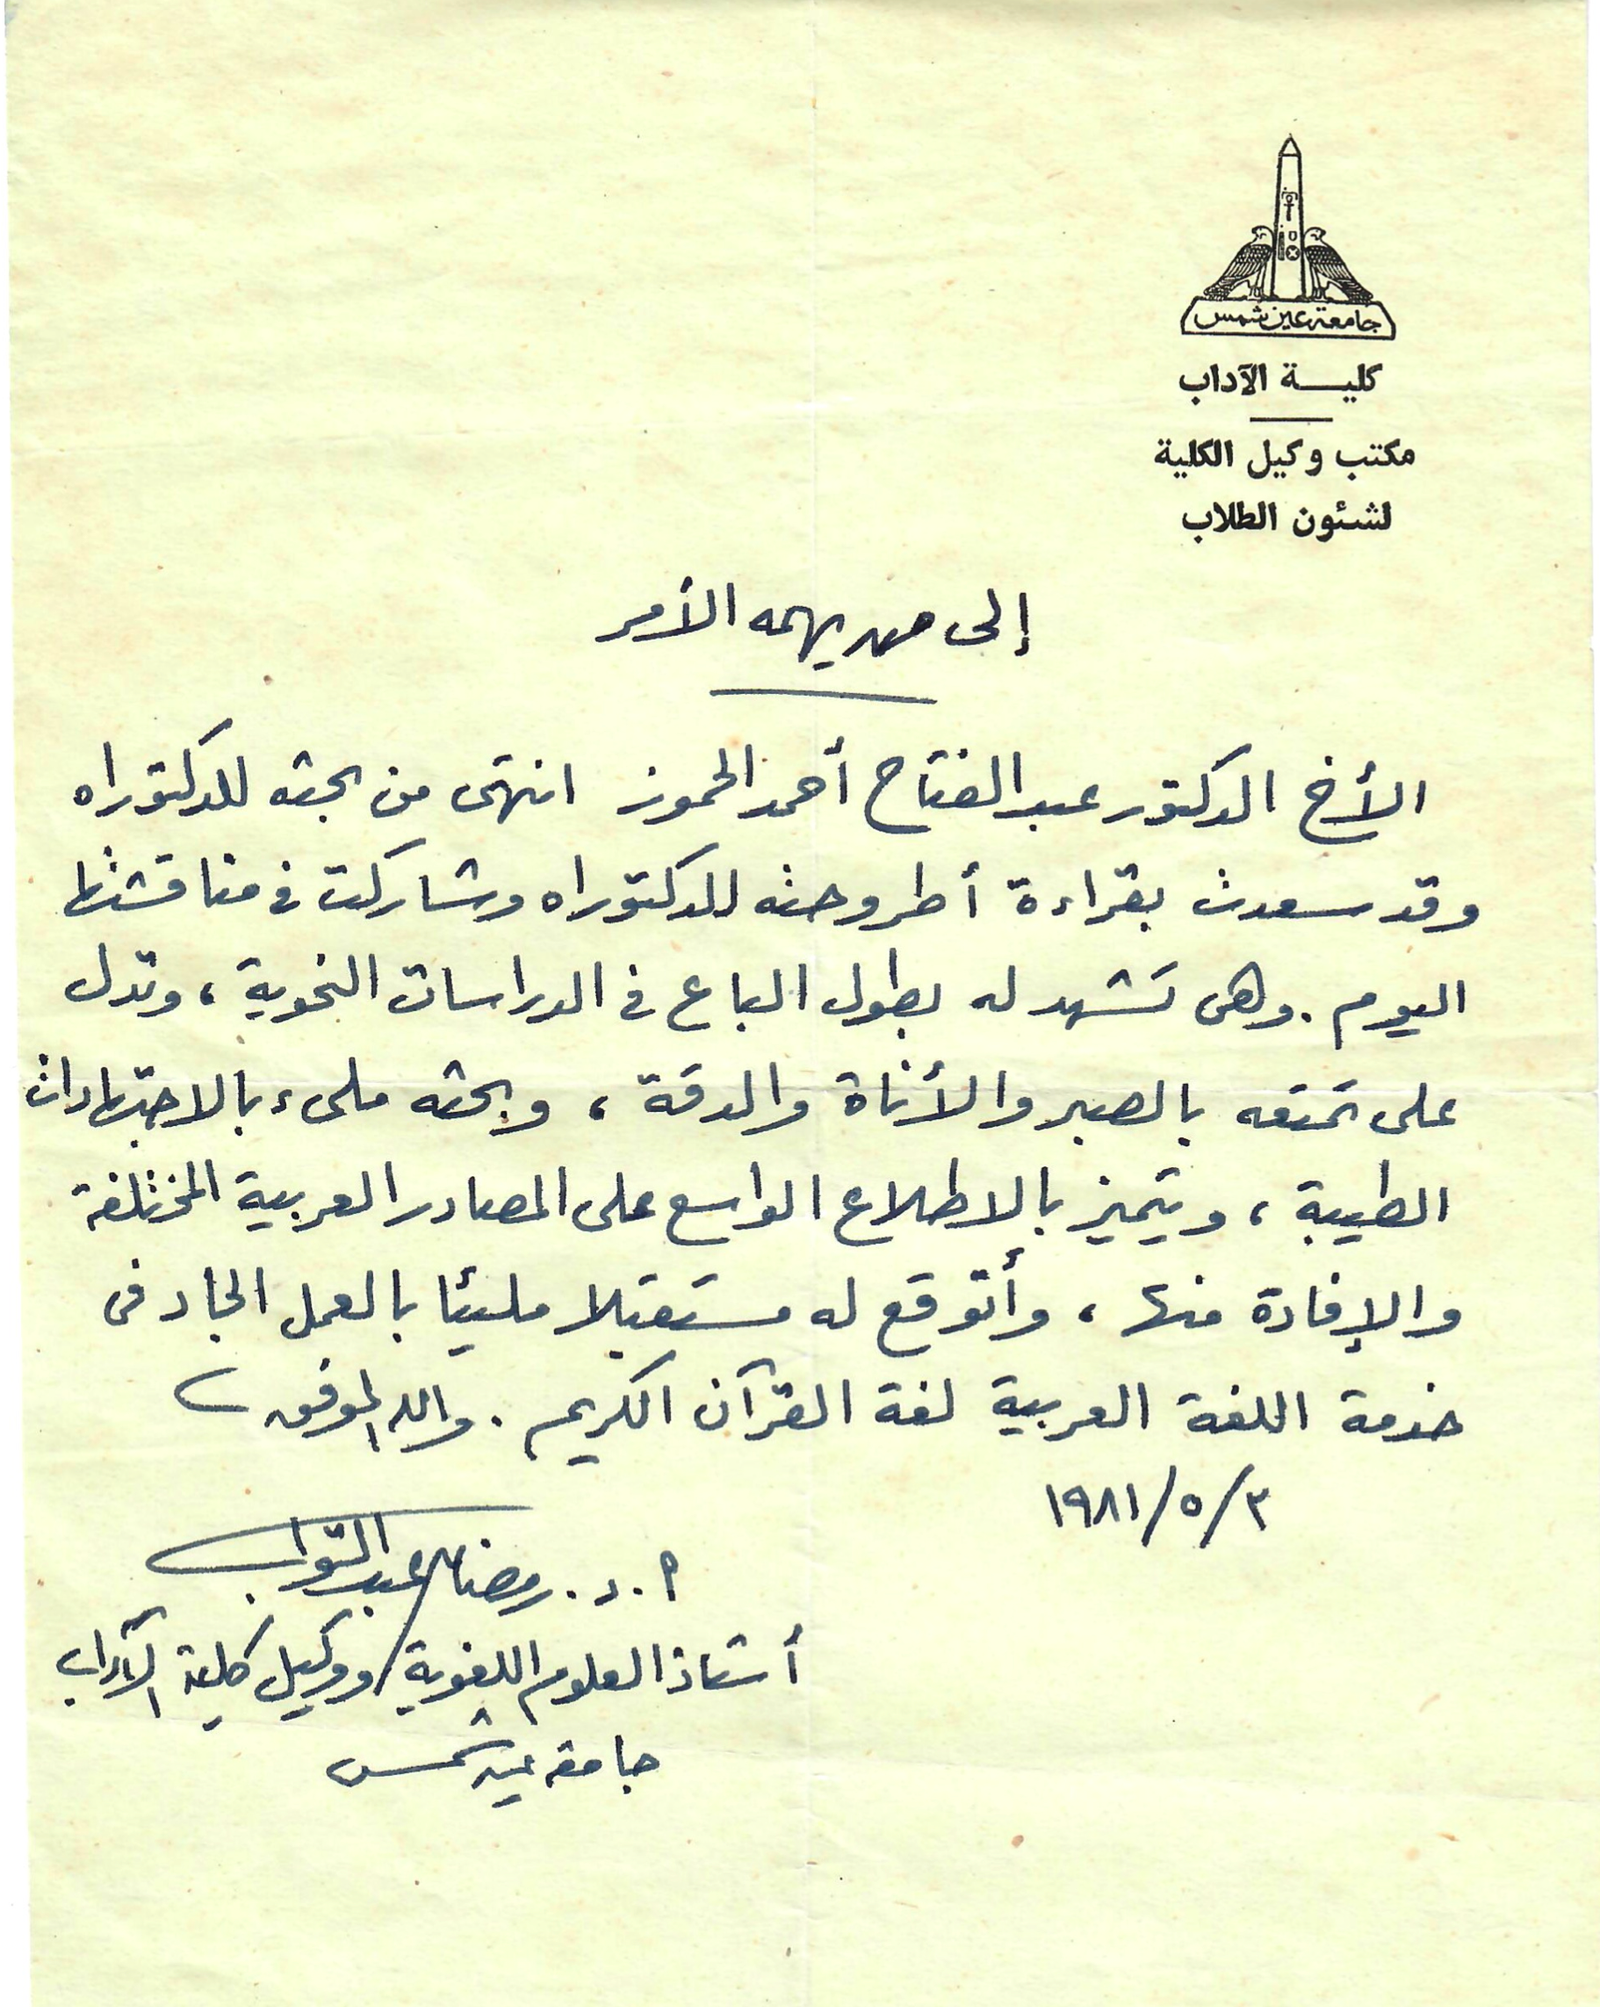 جامعة عين شمس
كليـــة الآداب
مكتب وكيل الكلية
لشئون الطلاب
إلى من يهمه الأمر
الأخ الدكتور عبد الفتاح أحمد الحموز انتهى من بحثه للدكتوراه
وقد سعدت بقراءة أطروحته للدكتوراه وشاركت في مناقشتها
اليوم . وهى تشهد له بطول الباع في الدراسات النحوية ، وتدل
على تمتعه بالصبر والأناة والدقة ، وبحثه ملىء بالاجتهادات
الطيبة ، ويتميز بالاطلاع الواسع على المصادر العربية المختلفة
والإفادة منها ، وأتوقع له مستقبلا مليئا بالعمل الجاد فى
خدمة اللغة العربية لغة القرآن الكريم . والله الموفق
٣/٥/١٩٨١
أ . د . رمضان عبد التواب
أستاذ العلوم اللغوية / ووكيل كلية الآداب
جامعة عين شمس